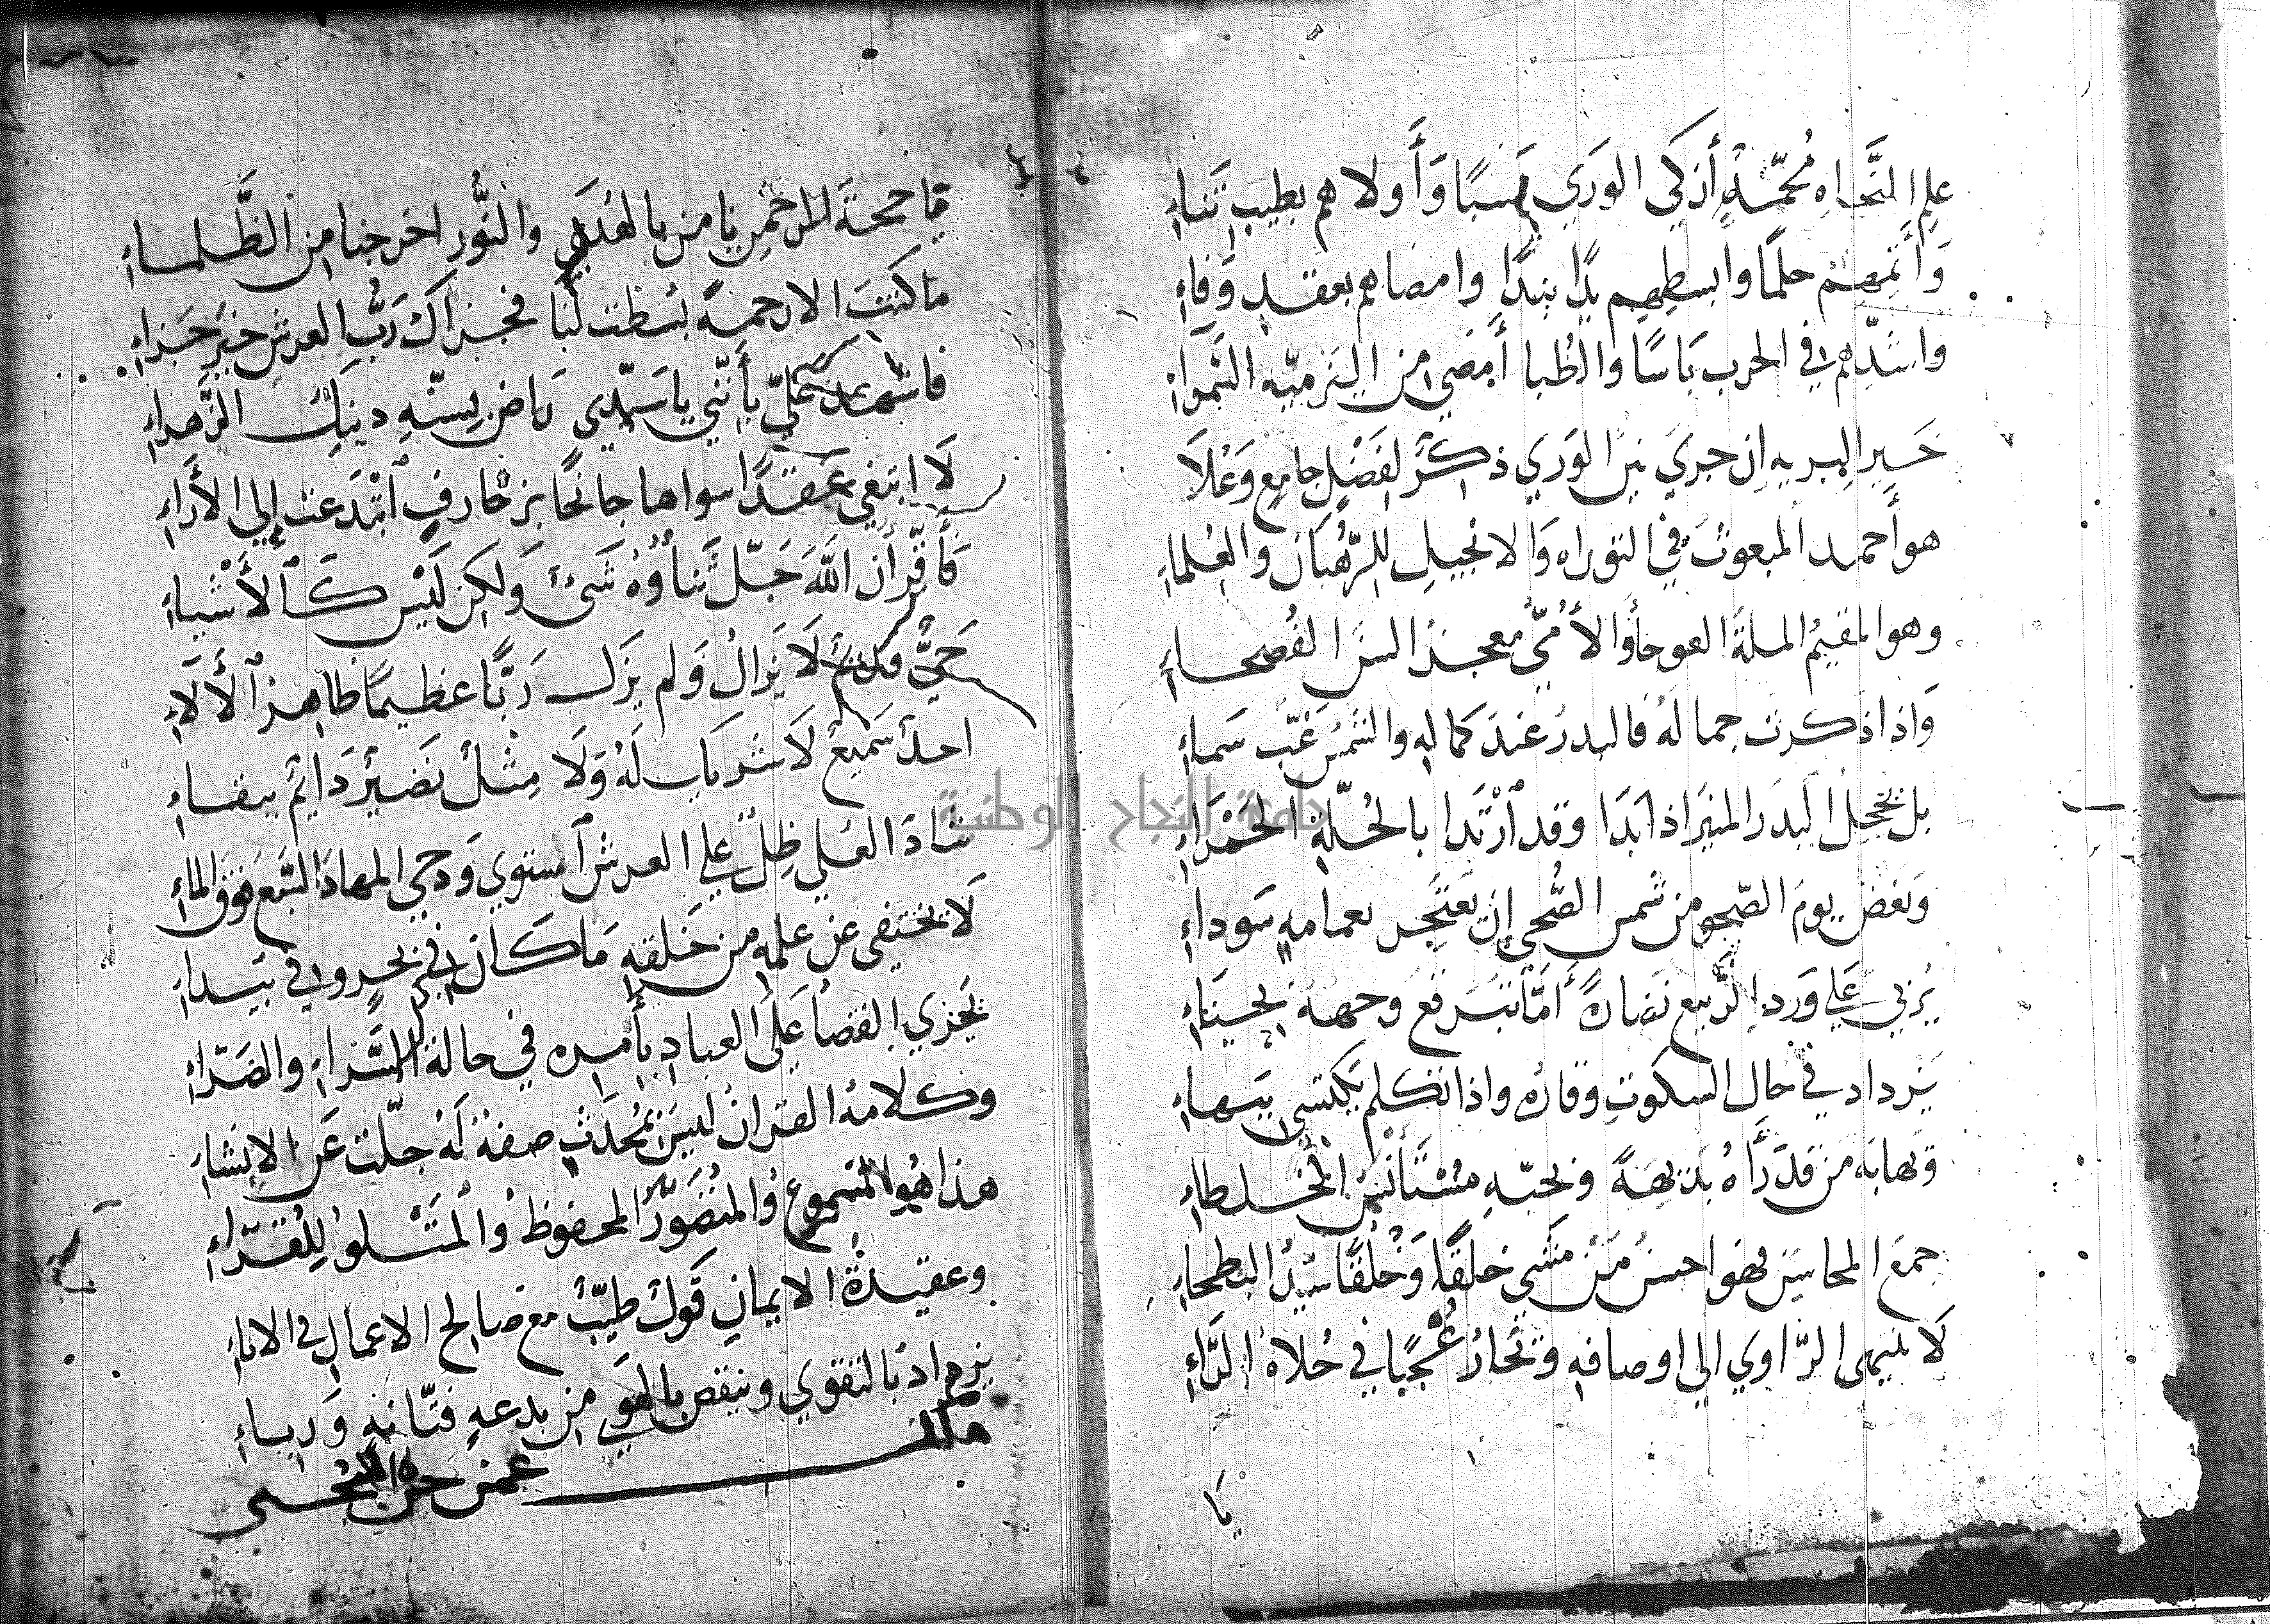 علم النجاه محمد أزكي الوري نسبًا وأولاهم بطيب ثناءِ
وأتمهم حلمًا وابسطهم يدًا بندًا وامضاهم بعقد وفاءِ
واشدّهم في الحرب بَاسًا والظُبا أمضي من اليزنيّه السّمراءِ
خير البريه إن جري بين الوري ذكرٌ لفضلٍ جامعٍ وعُلاَ
هو أحمد المبعوث في التوراه وَالانجيل للرُّهبان والعُلماءِ
وهو المقيمُ الملةَ العوجاَ والأُمّيُّ معجز السن الفُصحاءِ
وَاذا ذكرت جماله فالبدر عند كماله والشمسُ غبّ سَماءِ
بل يخجل البدرَ المنيَر اذا بَدَا وقد اُرْتَدا بالحُلّةِ الحَمْرَاءِ
وَتغضّ يومَ الصّحو من شمس الضُّحي إن يَعتَجر بعمامهٍ سَوداءِ
يُربي عَلي وَردِ الرّبيع نَضارةً أمّا تبَرقع وجهه بحيَاءِ
يَزداد في حال السكوتِ وقارُه واذا تكلم يكتسي بَبهاءِ
وتهابه مَن قد رَأهُ بَديهَةً وتحبّهِ مُسْتَأنس الخُلطاءِ
جمعَ المحاسَن فهو احسنُ مَنْ مَشَي خَلْقًا وَخُلْقًا سَيّدُ البَطحاءِ
لَا ينتهى الرّاوي الي اوصافهِ وتَحارُ عُجْبًا في حُلاهُ الرَّاءِ
يَا
يَا حجة الرحمن يا من بالهُدَي والنّور اخرجنا من الظَّلماءِ
مَا كنتَ الا رحمةً بُسطت لنا فجزاك رَبُّ العرش خيرَ جَزاءِ
فاشهد عليّ بأنّني يا سَيّدي رَاضٍ بسنّهِ دينك الزَّهراءِ
لَا ابتغي عَقدًا سواها جانحًا بزخارفٍ اُبْتدَعت إلي الأَراءِ
فَأُقرّ أن اللهَ جَلّ ثَناؤُهُ شَئٌ وَلكِن لَيْسَ كَالأَشْياءِ
حَيٌّ قديمٌ لَا يَزالُ وَلم يزَل رَبًّا عَظيمًا ظاهر الْأَلَاءِ
احدٌ سَميعٌ لَا شريك لَهُ وَلَا مِثلٌ بَصيرٌ دَائمٌ ببقاءِ
شادَ العُلي ظِلّ علي العرش استوي وَدحي المهادَ السَّبع فوق الماءِ
لَا يختفي عن علمهِ من خَلقهِ مَا كَان في بحرٍ وفي بَيداءِ
يَجري القضا عَلَي العبادِ بأمره في حالة السَّراءِ والضّراءِ
وكلامهُ القرانُ ليسَ بمُحدَثٍ صفةٌ لهُ جلّت عَن الاِنشاءِ
هذا هُو المَسموع وُالمنصُورُ المحفوظُ والمَتْلوُ لِلقُرّاءِ
وعقيدةُ الايمانِ قَولٌ طيّبٌ مع صَالح الاعمال في الاناءِ
يزداد بَالتقوي وينقص بالهَوي من بدعهٍ فتّانهٍ وَرياءِ